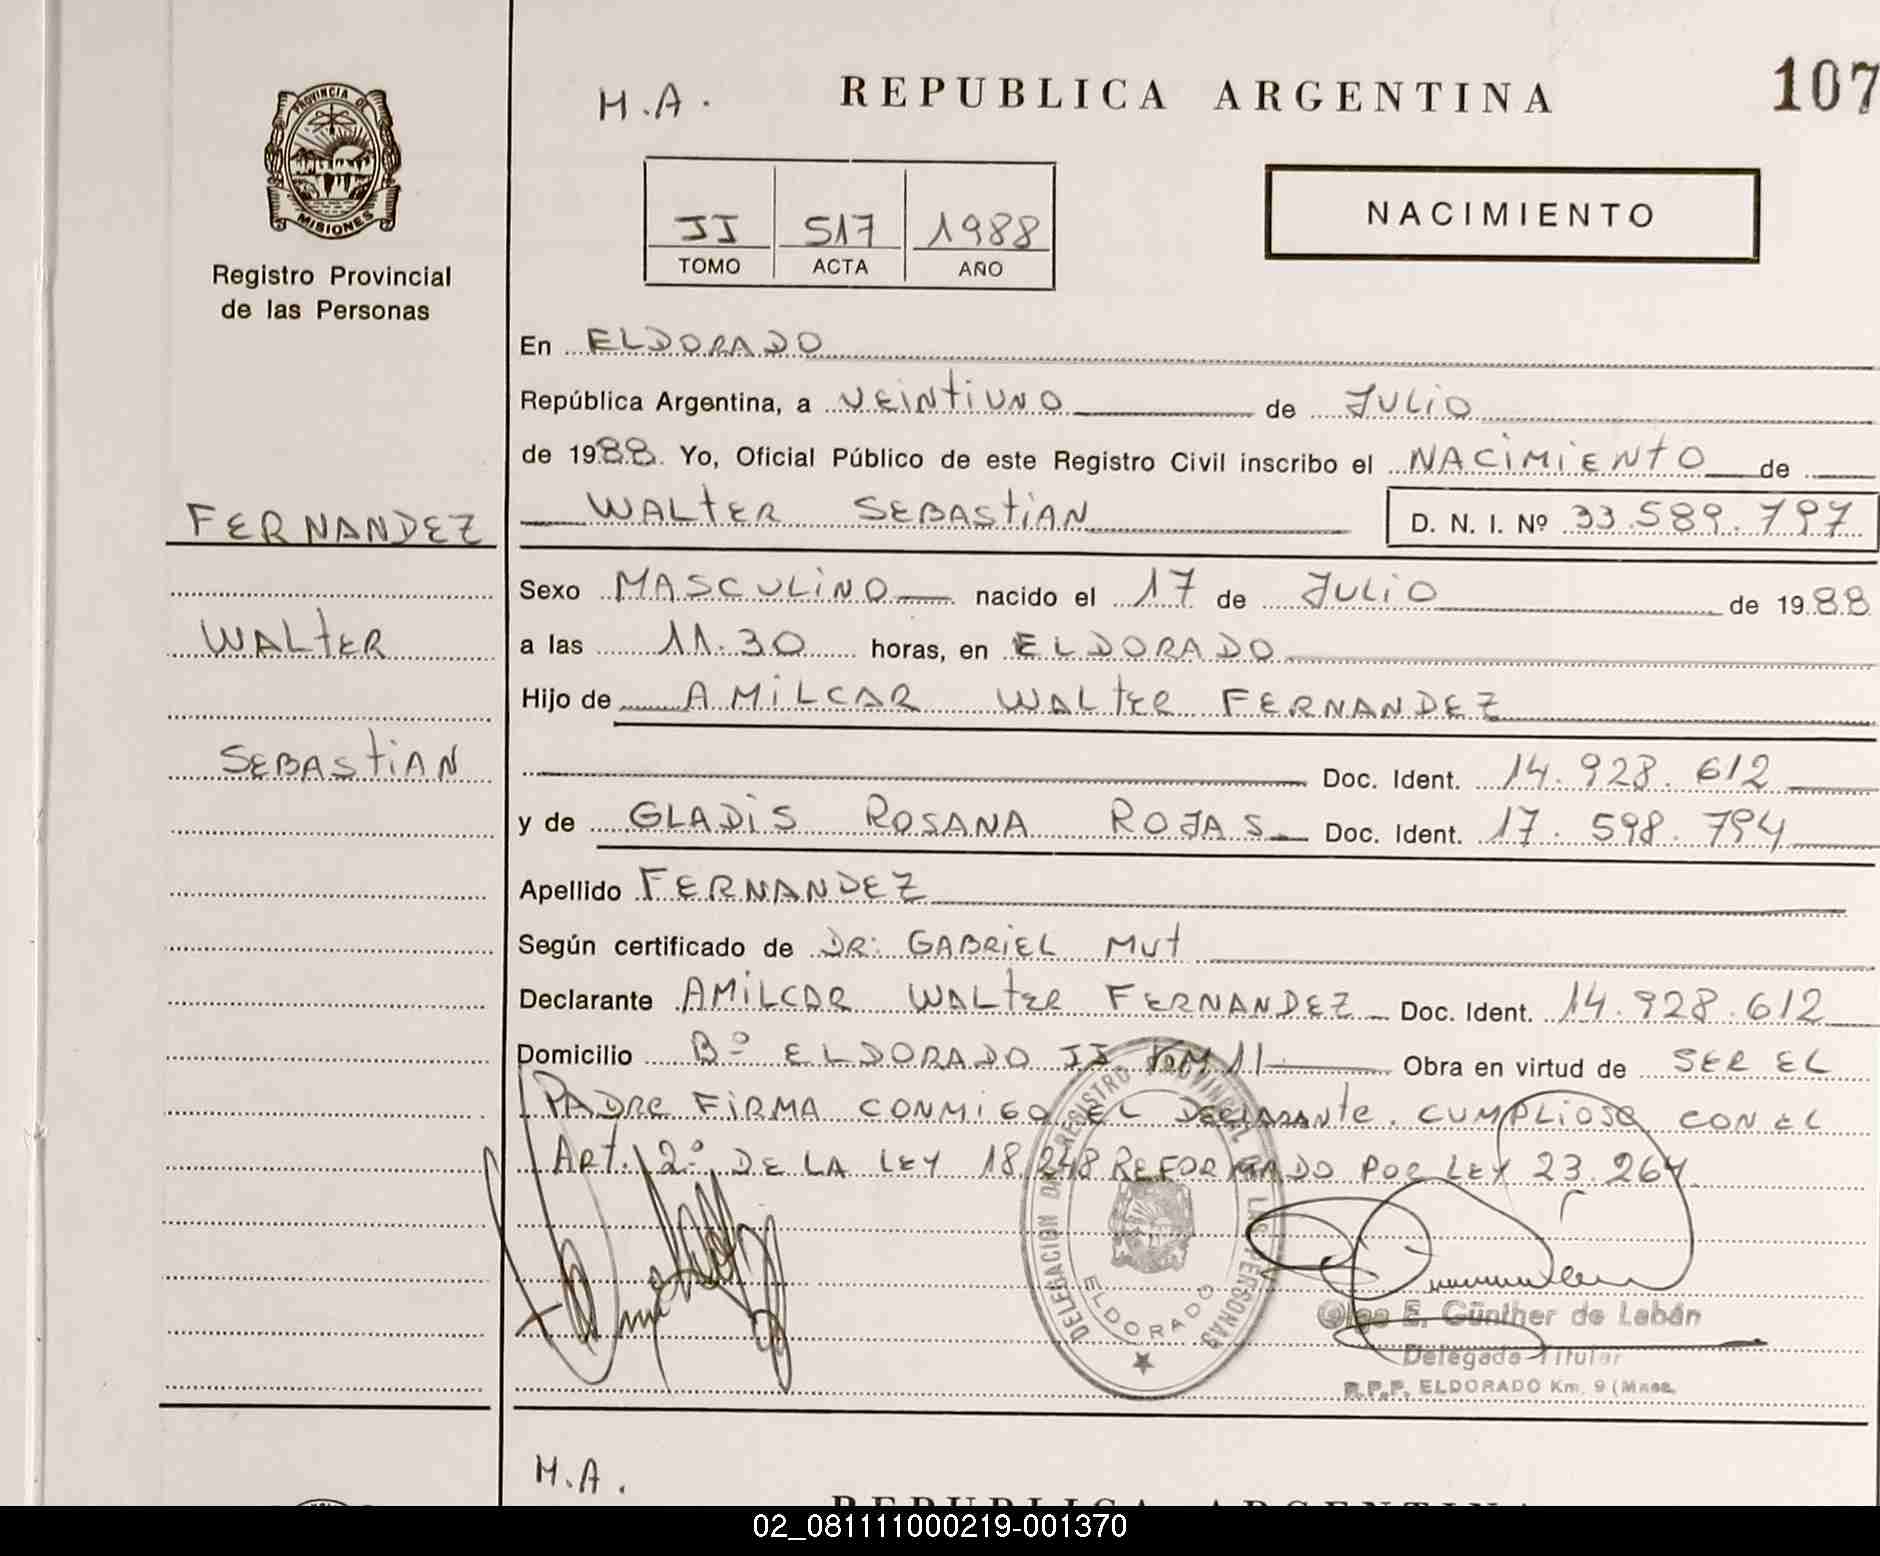 PROVINCIA DE
MISIONES
Registro Provincial
de las Personas
FERNANDEZ
WALTER
SEBASTIAN
M.A.
REPUBLICA ARGENTINA
107
II 517 1988
TOMO ACTA AÑO
NACIMIENTO
En ELDORADO
República Argentina, a VEINTIUNO de JULIO
de 1988. Yo, Oficial Público de este Registro Civil inscribo el NACIMIENTO de
WALTER SEBASTIAN D. N. I. Nº 33.589.797
Sexo MASCULINO nacido el 17 de JULIO de 1988
a las 11.30 horas, en ELDORADO
Hijo de AMILCAR WALTER FERNANDEZ
Doc. Ident. 14.928.612
y de GLADIS ROSANA ROJAS Doc. Ident. 17.598.794
Apellido FERNANDEZ
Según certificado de DR: GABRIEL MUT
Declarante AMILCAR WALTER FERNANDEZ Doc. Ident. 14.928.612
Domicilio Bº ELDORADO II KM 11 Obra en virtud de SER EL
PADRE FIRMA CONMIGO EL DECLARANTE. CUMPLIOSE CON EL
ART. 2º DE LA LEY 18.248 REFORMADO POR LEY 23.264
DELEGACION DEL REGISTRO PROVINCIAL DE LAS PERSONAS
ELDORADO
Olga E. Günther de Labán
Delegada Titular
R.P.P. ELDORADO Km. 9 (Mnes.
M.A.
REPUBLICA ARGENTINA
02_081111000219-001370